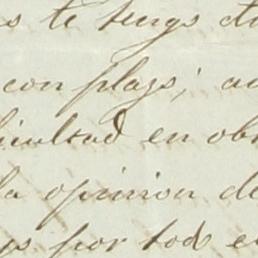 s te tengo
con plazo; a
icultad en ob
la opinion de
por todo e